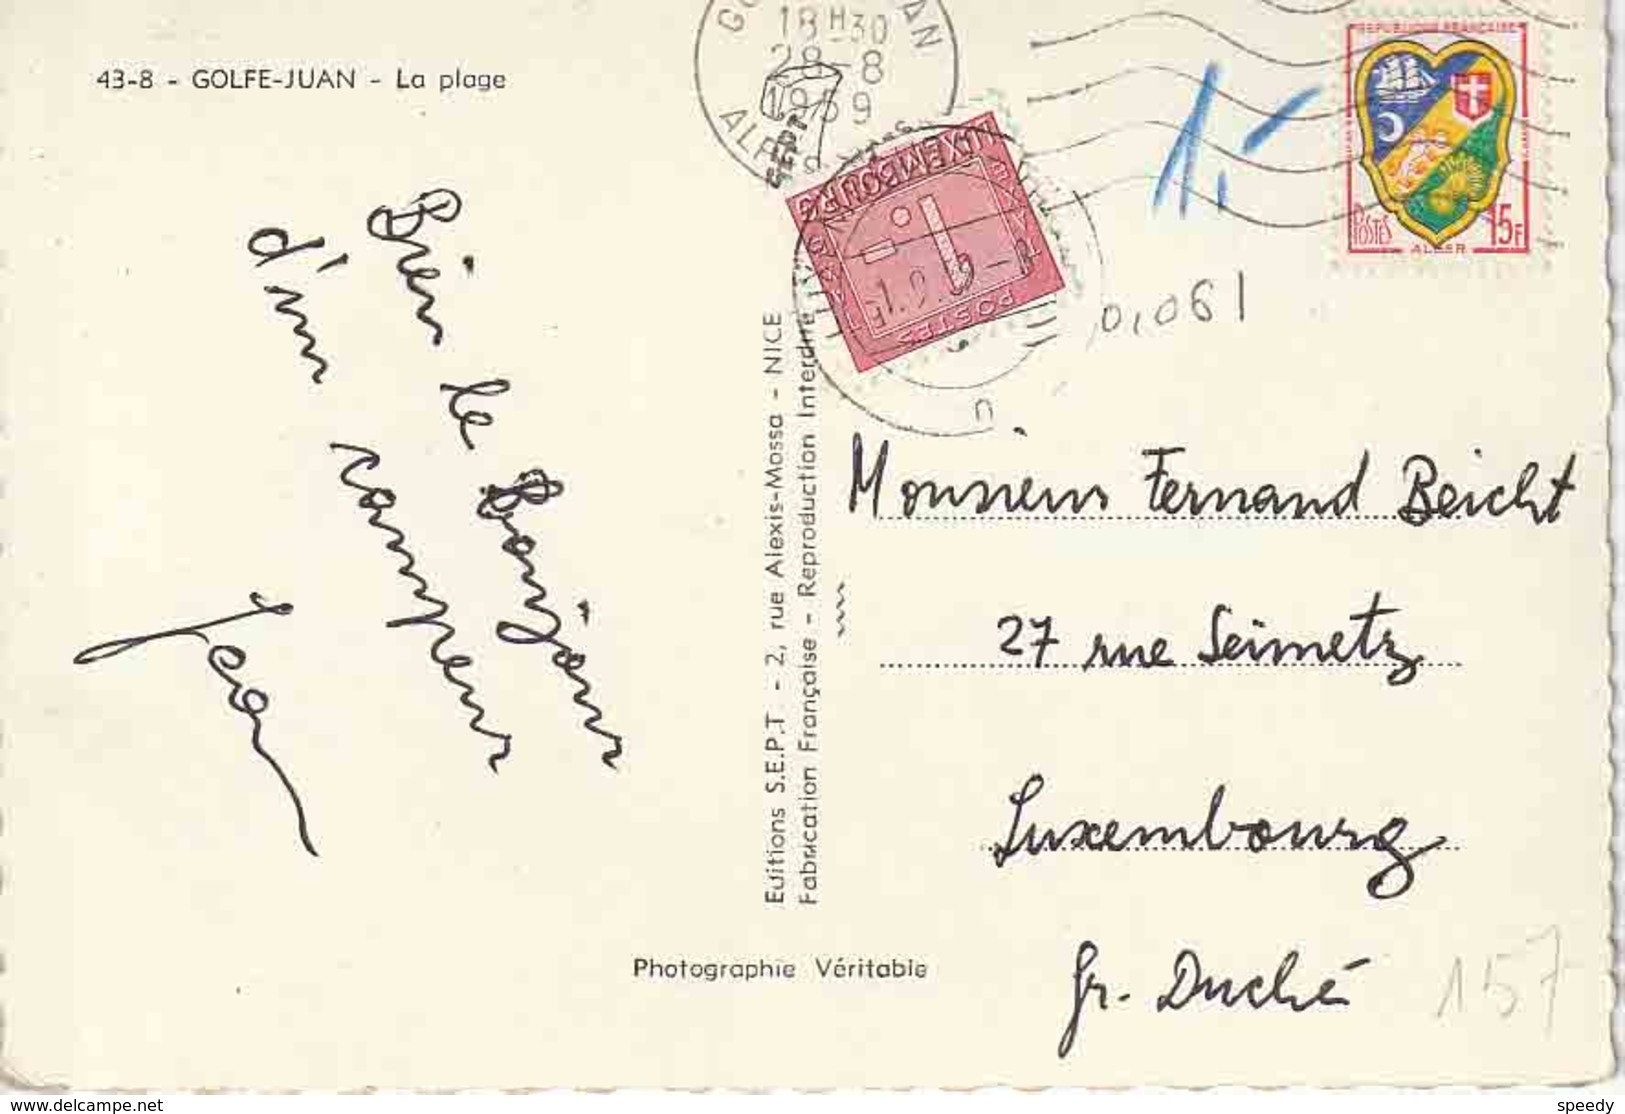 43-8 - GOLFE-JUAN - La plage
18H30
28-8
1959
REPUBLIQUE FRANCAISE
POSTES
ALGER
15F
LUXEMBOURG
POSTES
1.-
0,061
Bien le Bonjour
d'un campeur
Jean
Editions S.E.P.T. - 2, rue Alexis-Mossa - NICE
Fabrication Française - Reproduction Interdite
SEPT
Monsieur Fernand Beicht
27 rue Seimetz
Luxembourg
Gr. Duché
157
Photographie Véritable
www.delcampe.net
speedy